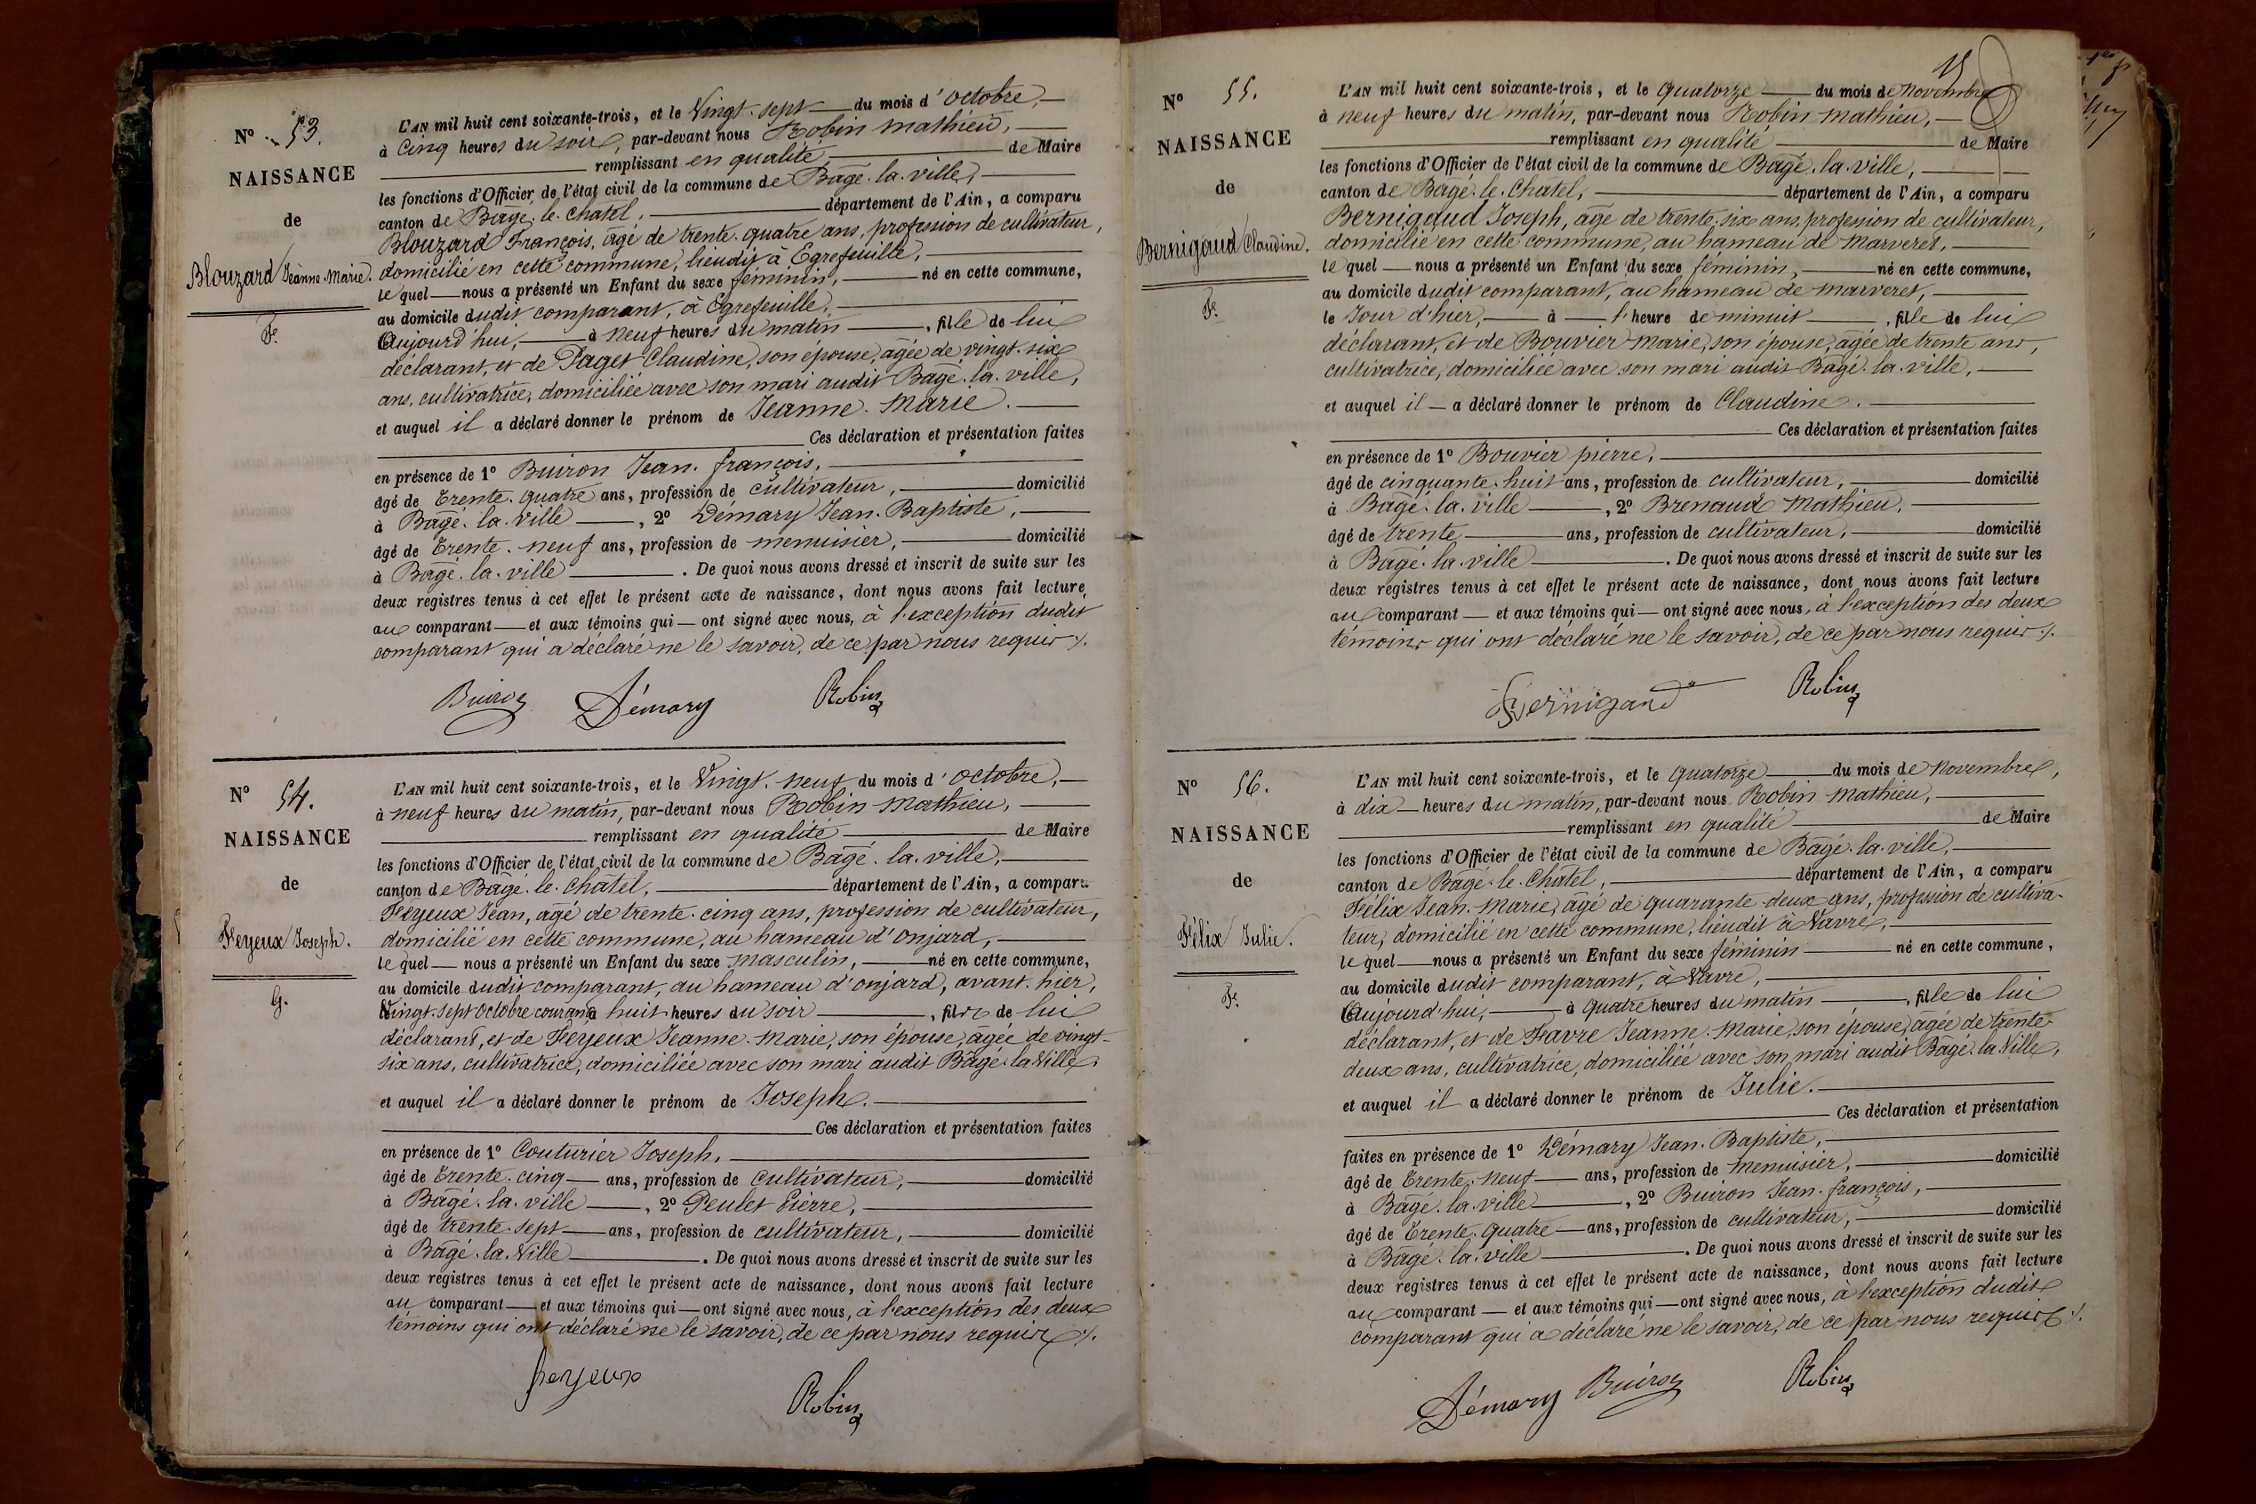 N° 53.
NAISSANCE
de
Blouzard Jeanne Marie.
Fe.
L'AN mil huit cent soixante-trois, et le Vingt-sept du mois d'octobre,
à cinq heures du soir, par-devant nous Robin Mathieu,
remplissant en qualité de Maire
les fonctions d'Officier de l'état civil de la commune de Bâgé-la-ville,
canton de Bâgé-le-Chatel, département de l'Ain, a comparu
Blouzard François, âgé de trente-quatre ans, profession de cultivateur,
domicilié en cette commune, lieudit à Egrefeuille,
lequel nous a présenté un Enfant du sexe féminin, né en cette commune,
au domicile dudit comparant, à Egrefeuille,
Aujourd'hui, à neuf heures du matin, fille de lui
déclarant, et de Paget Claudine, son épouse, âgée de vingt-six
ans, cultivatrice, domiciliée avec son mari audit Bâgé-la-ville,
et auquel il a déclaré donner le prénom de Jeanne-Marie.
Ces déclaration et présentation faites
en présence de 1° Buiron Jean-françois,
âgé de Trente-quatre ans, profession de cultivateur, domicilié
à Bâgé-la-ville, 2° Démary Jean-Baptiste,
âgé de Trente-neuf ans, profession de menuisier, domicilié
à Bâgé-la-ville. De quoi nous avons dressé et inscrit de suite sur les
deux registres tenus à cet effet le présent acte de naissance, dont nous avons fait lecture
au comparant et aux témoins qui ont signé avec nous, à l'exception dudit
comparant qui a déclaré ne le savoir, de ce par nous requis ./.
Buiron Démary Robin
N° 54.
NAISSANCE
de
Feyeux Joseph.
G.
L'AN mil huit cent soixante-trois, et le Vingt-neuf du mois d'octobre,
à neuf heures du matin, par-devant nous Robin Mathieu,
remplissant en qualité de Maire
les fonctions d'Officier de l'état civil de la commune de Bâgé-la-ville,
canton de Bâgé-le-Châtel, département de l'Ain, a comparu
Féyeux Jean, âgé de trente-cinq ans, profession de cultivateur,
domicilié en cette commune, au hameau d'onjard,
lequel nous a présenté un Enfant du sexe masculin, né en cette commune,
au domicile dudit comparant, au hameau d'onjard, avant-hier,
Vingt-sept octobre courant à huit heures du soir, fils de lui
déclarant, et de Féyeux Jeanne-Marie, son épouse, âgée de vingt-
six ans, cultivatrice, domiciliée avec son mari audit Bâgé-la-Ville,
et auquel il a déclaré donner le prénom de Joseph.
Ces déclaration et présentation faites
en présence de 1° Couturier Joseph,
âgé de Trente-cinq ans, profession de cultivateur, domicilié
à Bâgé-la-ville, 2° Peulet Pierre,
âgé de trente-sept ans, profession de cultivateur, domicilié
à Bâgé-la-Ville. De quoi nous avons dressé et inscrit de suite sur les
deux registres tenus à cet effet le présent acte de naissance, dont nous avons fait lecture
au comparant et aux témoins qui ont signé avec nous, à l'exception des deux
témoins qui ont déclaré ne le savoir, de ce par nous requis ./.
feyeux Robin
N° 55.
NAISSANCE
de
Bernigaud Claudine.
Fe.
L'AN mil huit cent soixante-trois, et le quatorze du mois de Novembre
à neuf heures du matin, par-devant nous Robin Mathieu,
remplissant en qualité de Maire
les fonctions d'Officier de l'état civil de la commune de Bâgé-la-ville,
canton de Bâgé-le-Chatel, département de l'Ain, a comparu
Bernigaud Joseph, âgé de trente-six ans, profession de cultivateur,
domicilié en cette commune, au hameau de Marveret,
lequel nous a présenté un Enfant du sexe féminin, né en cette commune,
au domicile dudit comparant, au hameau de Marveret,
le Jour d'hier, à l'heure de minuit, fille de lui
déclarant, et de Bouvier Marie, son épouse, âgée de trente ans,
cultivatrice, domiciliée avec son mari audit Bâgé-la-ville,
et auquel il a déclaré donner le prénom de Claudine.
Ces déclaration et présentation faites
en présence de 1° Bouvier pierre,
âgé de cinquante-huit ans, profession de cultivateur, domicilié
à Bâgé-la-ville, 2° Brenaud Mathieu,
âgé de trente ans, profession de cultivateur, domicilié
à Bâgé-la-ville. De quoi nous avons dressé et inscrit de suite sur les
deux registres tenus à cet effet le présent acte de naissance, dont nous avons fait lecture
au comparant et aux témoins qui ont signé avec nous, à l'exception des deux
témoins qui ont déclaré ne le savoir, de ce par nous requis ./.
Bernigaud Robin
N° 56.
NAISSANCE
de
Félix Julie.
Fe.
L'AN mil huit cent soixante-trois, et le quatorze du mois de Novembre,
à dix heures du matin, par-devant nous Robin Mathieu,
remplissant en qualité de Maire
les fonctions d'Officier de l'état civil de la commune de Bâgé-la-ville,
canton de Bâgé-le-Châtel, département de l'Ain, a comparu
Félix Jean-Marie, âgé de quarante-deux ans, profession de cultiva-
teur, domicilié en cette commune, lieudit à Navre,
lequel nous a présenté un Enfant du sexe féminin né en cette commune,
au domicile dudit comparant, à Navre,
Aujourd'hui, à quatre heures du matin, fille de lui
déclarant, et de Favre Jeanne-Marie, son épouse, âgée de trente-
deux ans, cultivatrice, domiciliée avec son mari audit Bâgé-la-Ville,
et auquel il a déclaré donner le prénom de Julie.
Ces déclaration et présentation
faites en présence de 1° Démary Jean-Baptiste,
âgé de Trente-neuf ans, profession de menuisier, domicilié
à Bâgé-la-ville, 2° Buiron Jean-françois,
âgé de Trente-quatre ans, profession de cultivateur, domicilié
à Bâgé-la-ville. De quoi nous avons dressé et inscrit de suite sur les
deux registres tenus à cet effet le présent acte de naissance, dont nous avons fait lecture
au comparant et aux témoins qui ont signé avec nous, à l'exception dudit
comparant qui a déclaré ne le savoir, de ce par nous requis ./.
Démary Buiron Robin